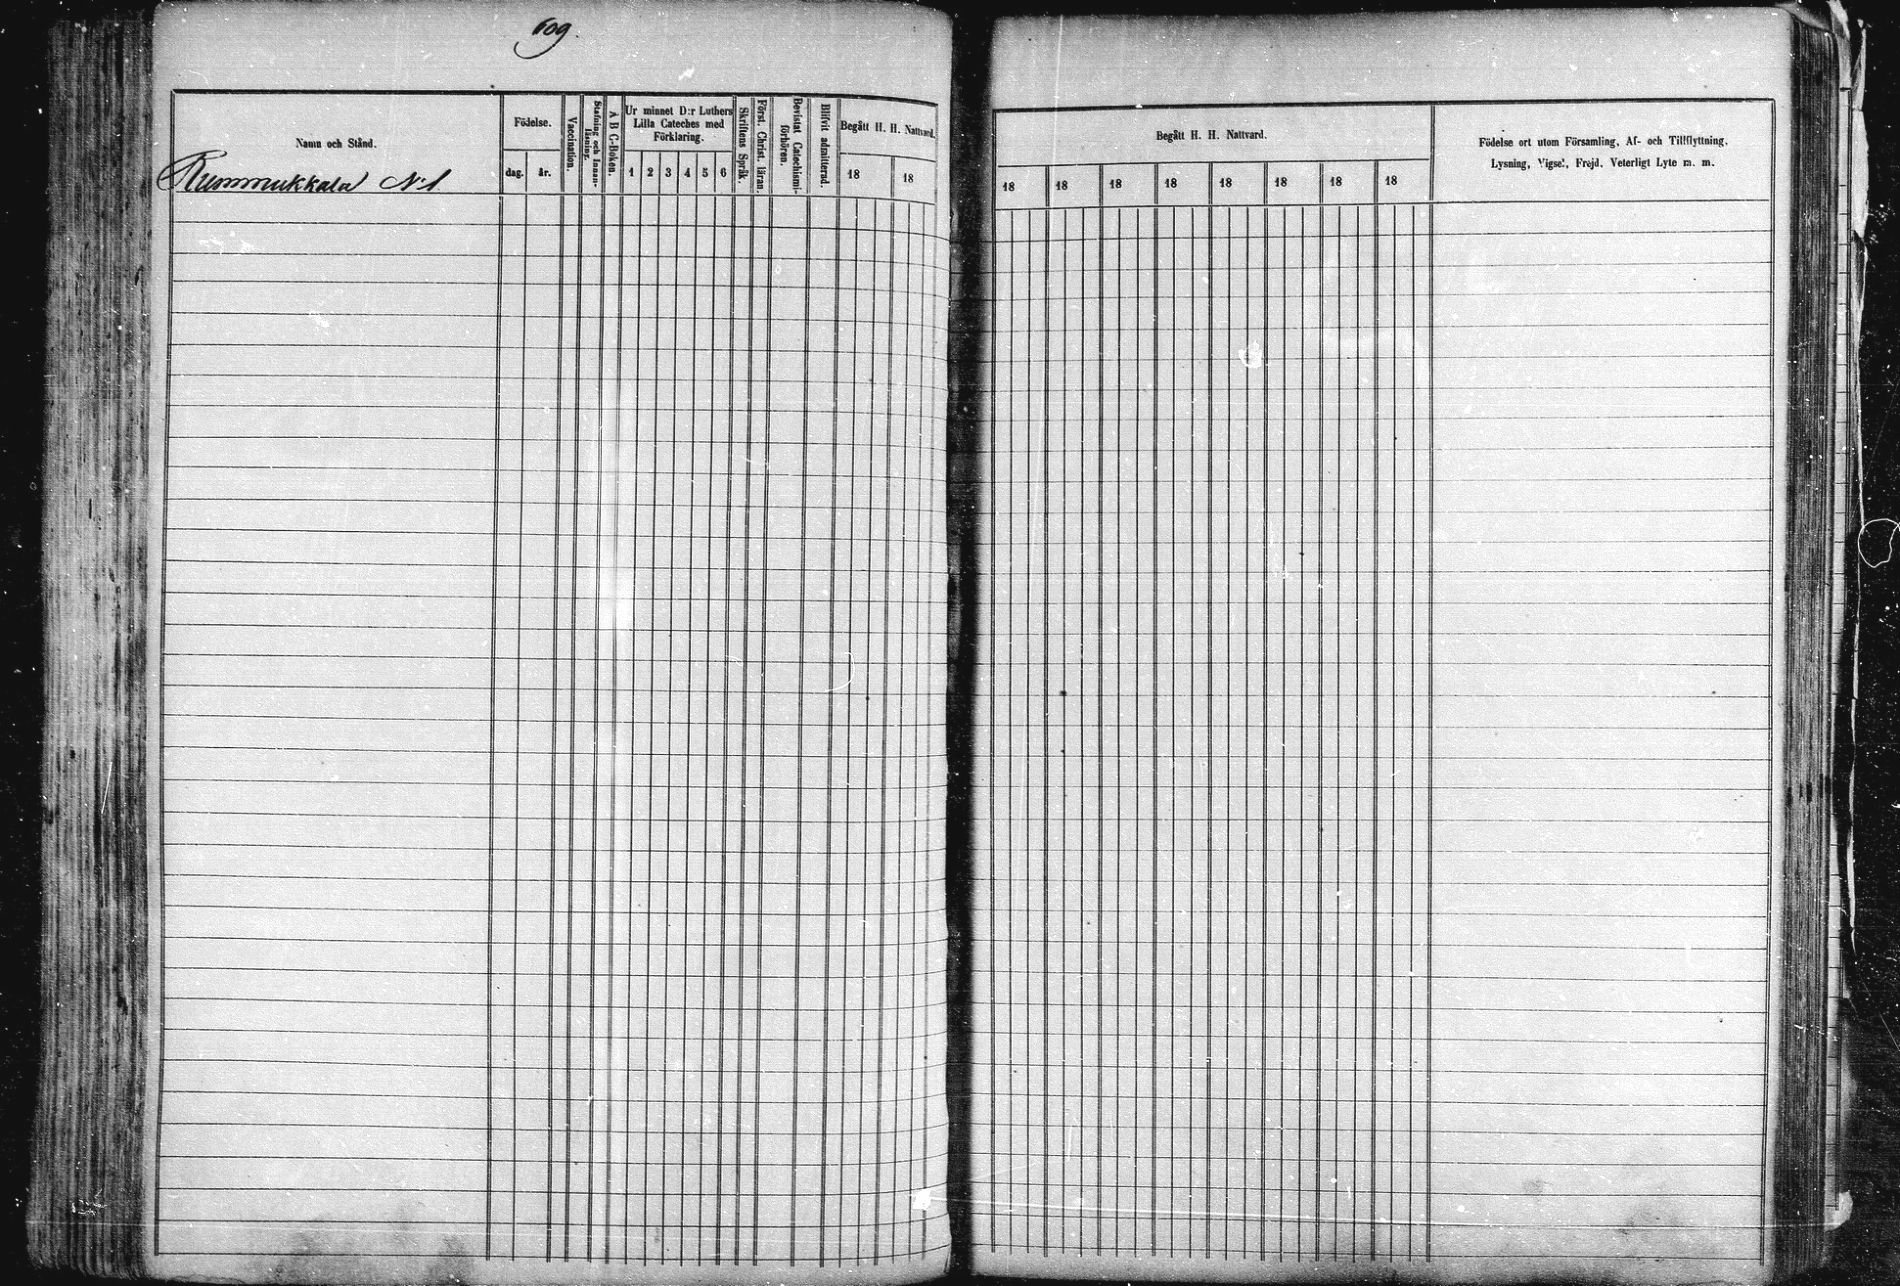 609.
Namn och Stånd.
Rummukkala N:1
Födelse.
dag. år.
Vaccination.
Stafning och Innan-
läsning.
A B C-Boken.
Ur minnet D:r Luthers
Lilla Cateches med
Förklaring.
1 2 3 4 5 6
Skriftens Språk.
Först. Christ. läran.
Bevistat Catechismi-
förhören.
Blifvit admitterad.
Begått H. H. Nattvard.
18 18
Begått H. H. Nattvard.
18 18 18 18 18 18 18 18
Födelse ort utom Församling, Af- och Tillflyttning,
Lysning, Vigsel, Frejd, Veterligt Lyte m. m.